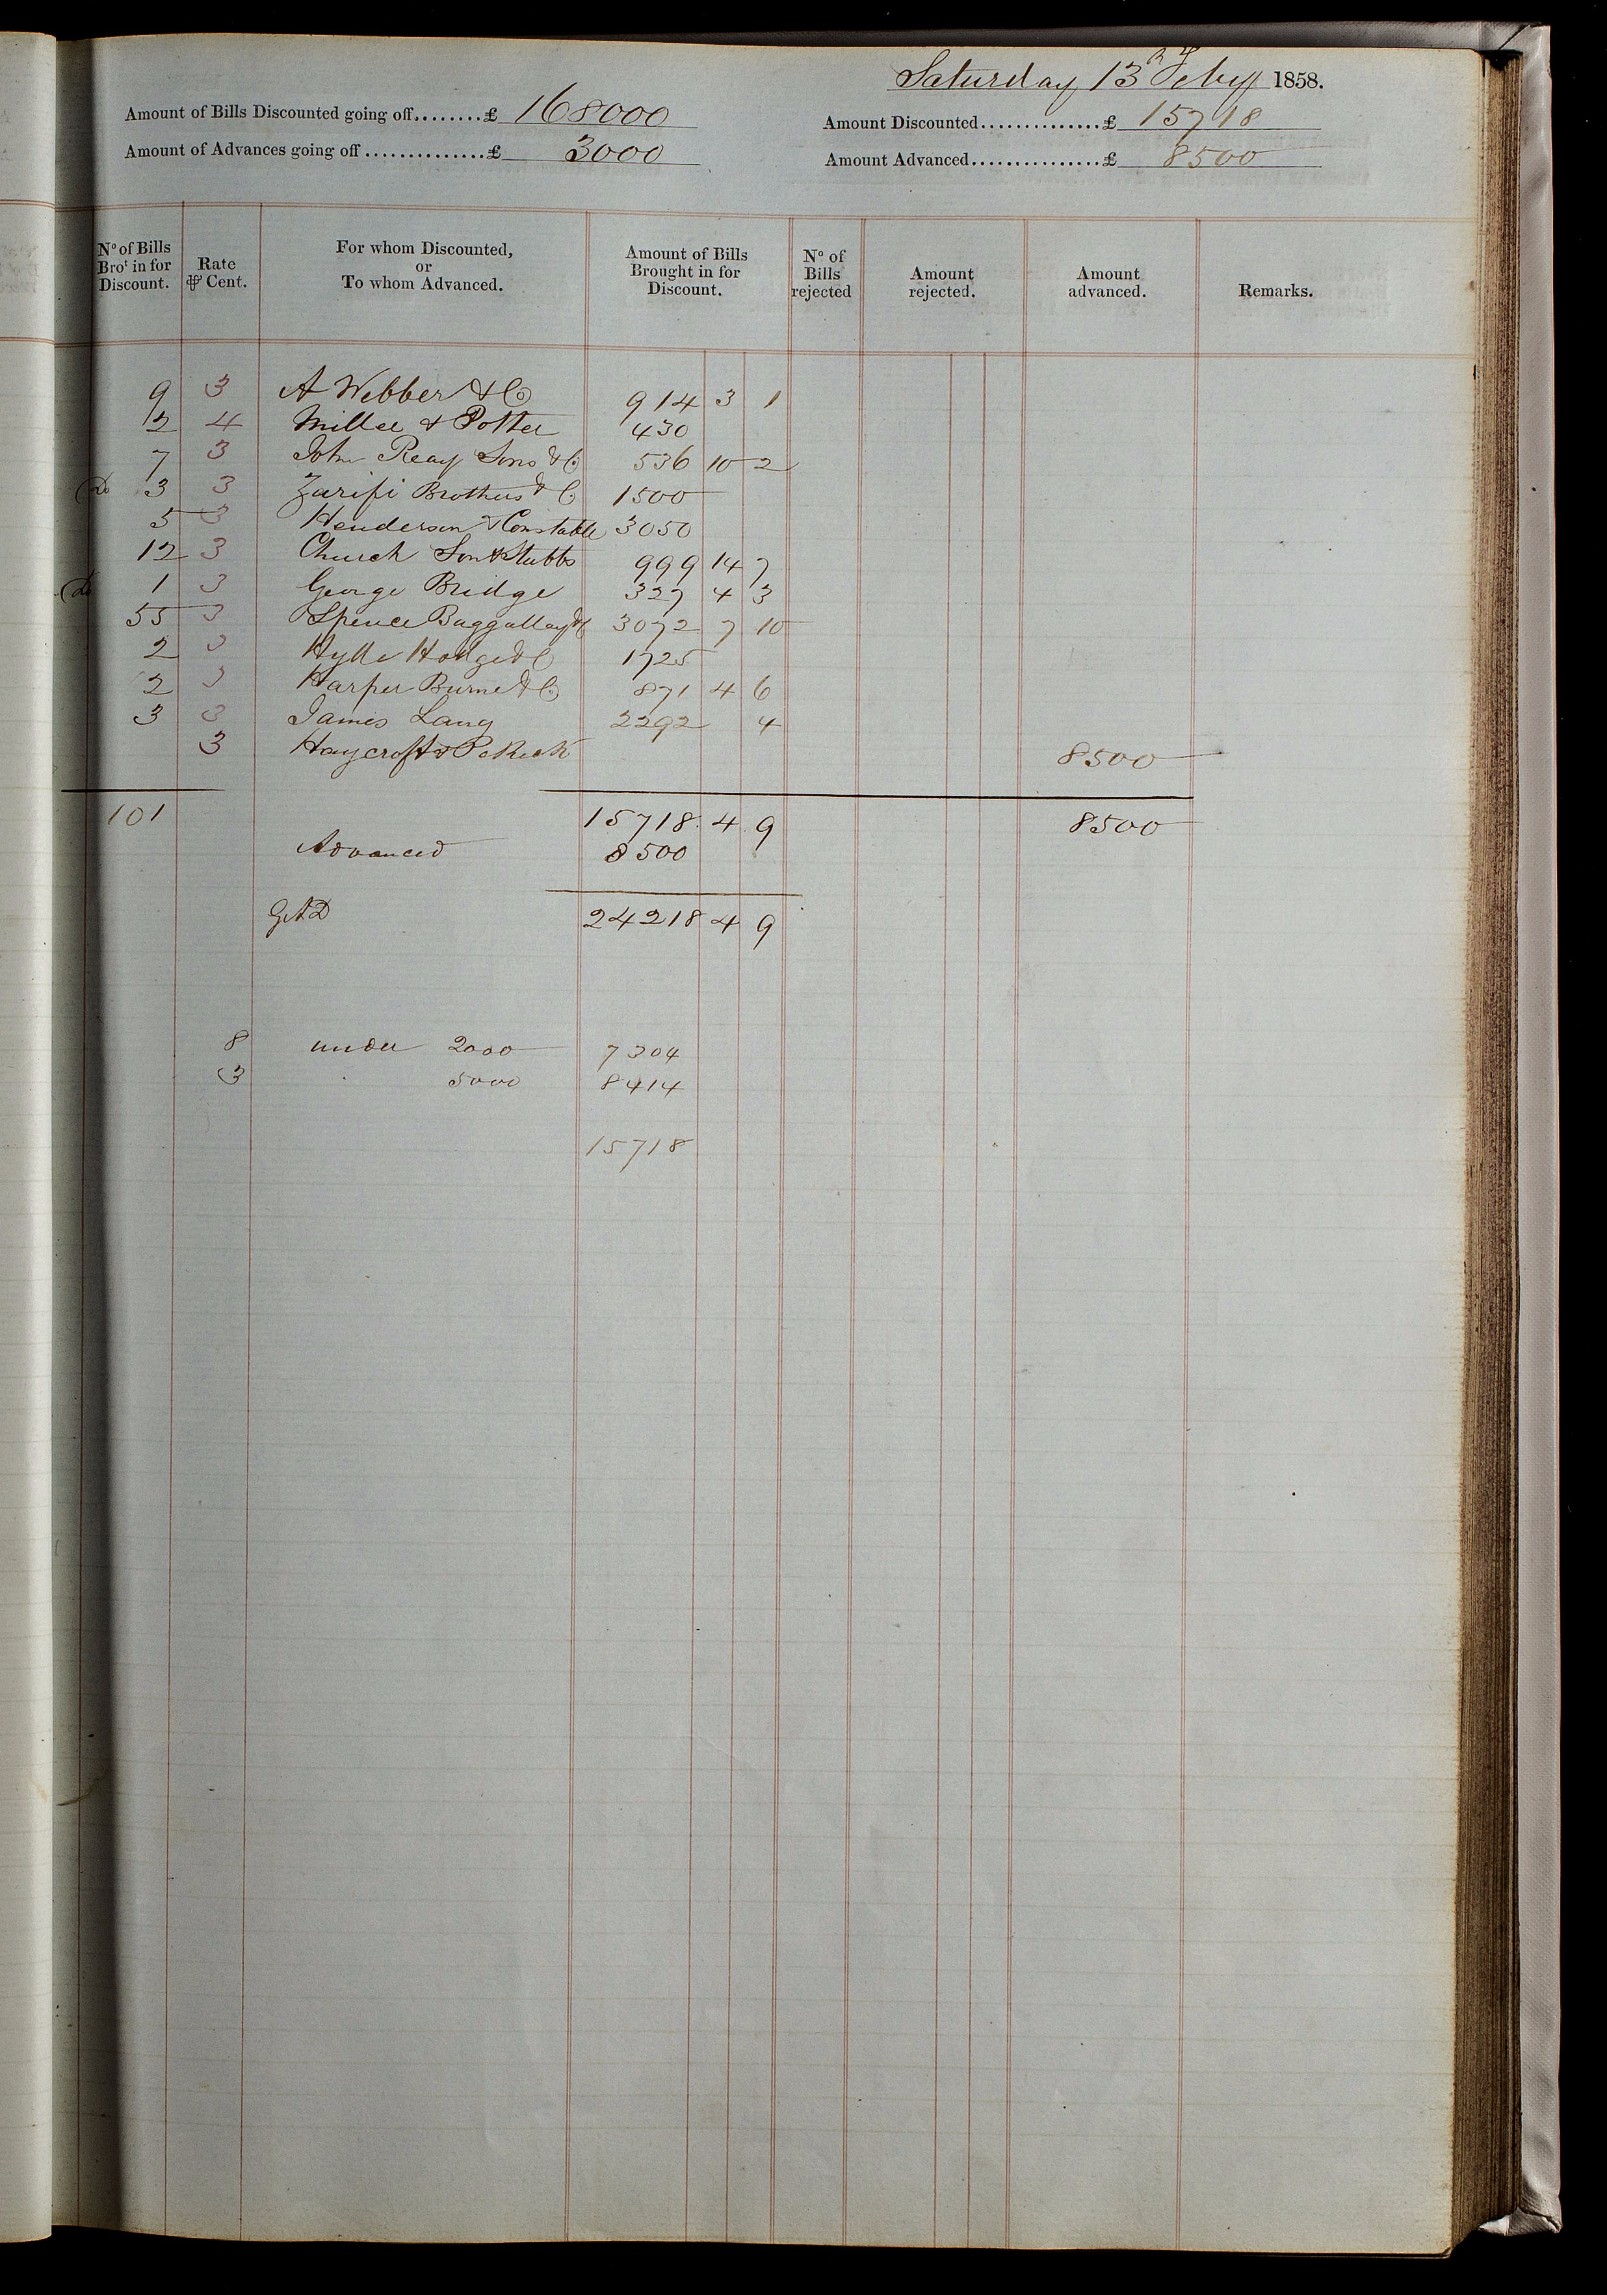 Saturday 13 Feby 1858.
Amount of Bills Discounted going off........£ 168000
Amount Discounted..............£ 15718
Amount of Advances going off..............£ 3000
Amount Advanced...............£ 8500
No of Bills Brot in for Discount.
Rate ⅌ Cent.
For whom Discounted, or To whom Advanced.
Amount of Bills Brought in for Discount.
No of Bills rejected
Amount rejected.
Amount advanced.
Remarks.
9 3 A Webber & Co 914 3 1
2 4 Miller & Potter 430
7 3 John Reay Sons & Co 536 10 2
3 3 Zarifi Brothers & Co 1500
5 3 Henderson & Constable 3050
12 3 Church Son & Stubbs 999 14 7
1 3 George Bridge 327 4 3
55 3 Spence Baggallay & Co 3072 7 10
2 3 Hylle Hodge & Co 1725
2 3 Harper Burne & Co 871 4 6
3 3 James Lang 2292 4
3 Haycroft & 8500
101 15718 4 9 8500
Advanced 8500
GAD 24218 4 9
8 under 2000 7304
3 5000 8414
15718